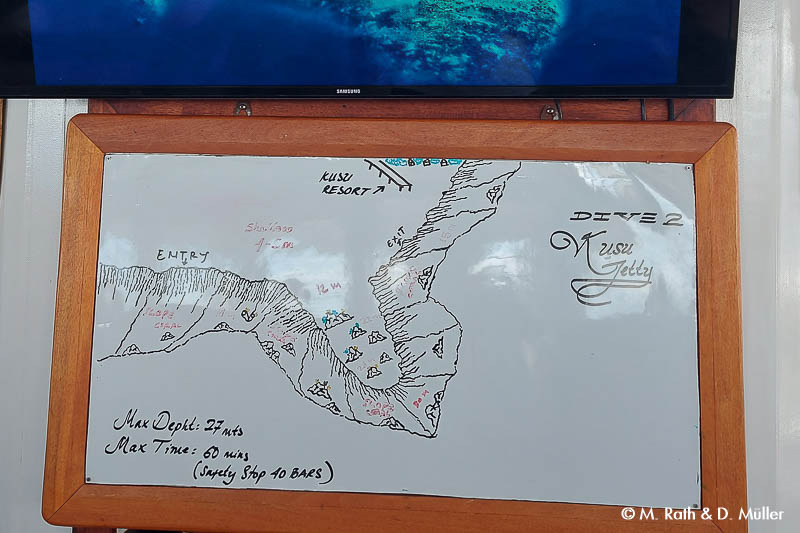 SAMSUNG
KUSU
RESORT
DIVE 2
Kusu
Jetty
EXIT
ENTRY
12 M
Max Depht: 27 mts
Max Time: 60 mins
(Safety Stop 40 BARS)
© M. Rath & D. Müller